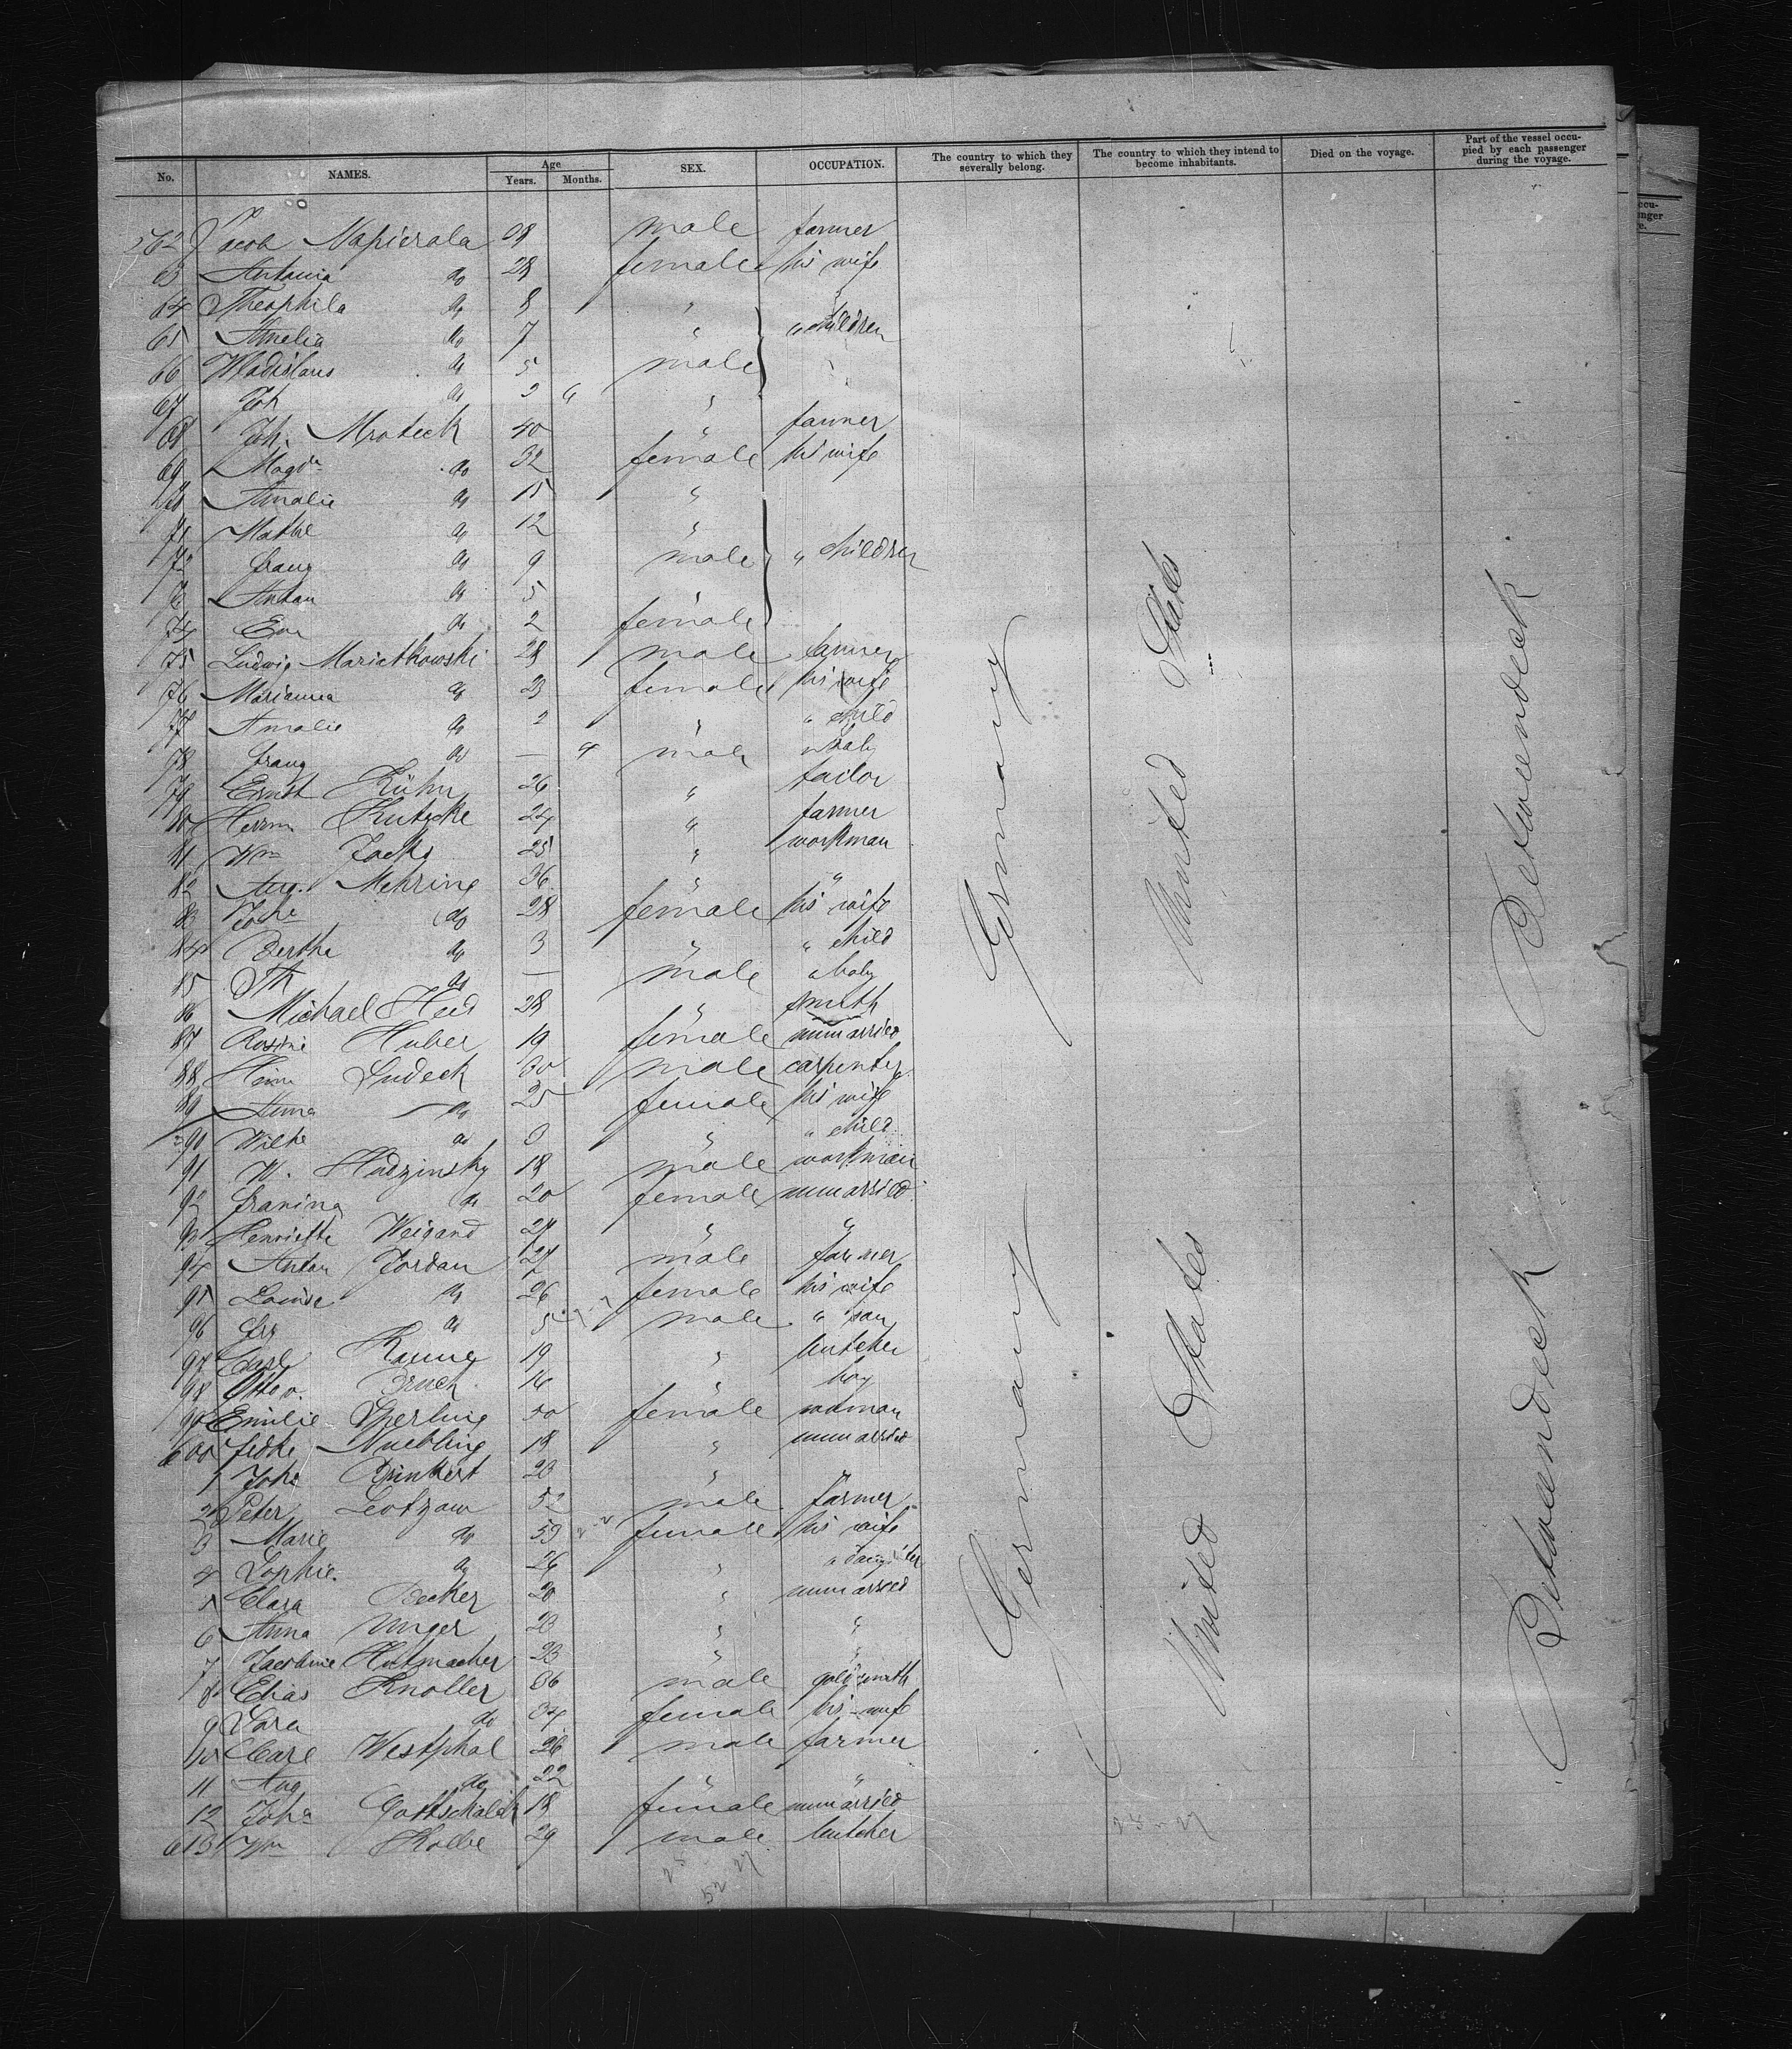 No. NAMES. Age Years. Months. SEX. OCCUPATION. The country to which they severally belong. The country to which they intend to become inhabitants. Died on the voyage. Part of the vessel occupied by each passenger during the voyage.
562 Jacob Napierala 38 male farmer
63 Antonia do 28 female his wife
64 Theophila do 8 "
65 Amelia do 7 " " children
66 Wladislaus do 5 male
67 Joh do 2 "
68 Joh. Mroteck 40 " farmer
69 Magda do 32 female his wife
70 Amalie do 15 "
71 Mathe do 12 "
72 Franz do 9 male " children
73 Anton do 5 "
74 Eva do 2 female
75 Ludwig Mariatkowski 28 male farmer
76 Marianna do 23 female his wife
77 Amalie do 2 " " child
78 Franz do — male " baby
79 Ernst Kühn 26 " tailor
80 Herm Kutzcke 24 " farmer
81 Wm Jacks 25 " workman
82 Aug. Mehring 36 " "
83 Johe do 28 female his wife
84 Berthe do 3 " " child
85 Th do — male " baby
86 Michael Heid 28 " smith
87 Rosine Huber 19 female unmarried
88 Heinr Ludeck 30 male carpenter
89 Anna do 25 female his wife
590 Wilhe do 3 " " child
91 W. Hudzinsky 18 male workman
92 Franina do 20 female unmarried
93 Henriette Weigand 24 " "
94 Anton Jordan 27 male farmer
95 Louise do 26 female his wife
96 Frz do 5 male " son
97 Carl 19 " butcher
98 Otto v. Bruch 16 " boy
99 Emilie Sperling 50 female woman
600 Fridke Nuebling 18 " unmarried
1 Joha Brinkert 23 " "
2 Peter Leotzow 52 male farmer
3 Marie do 59 female his wife
4 Sophie do 26 " " daughter
5 Clara Becker 20 " unmarried
6 Anna Unger 23 " "
7 Jacobine Hutmacher 23 " "
8 Elias Knoller 36 male goldsmith
9 Sara do 34 female his wife
10 Carl Westphal 26 male farmer
11 Aug do 22 " "
12 Joha Gottschalck 18 female unmarried
613 Wm Kolbe 29 male butcher
Germany United States Betweendeck
Germany United States Betweendeck